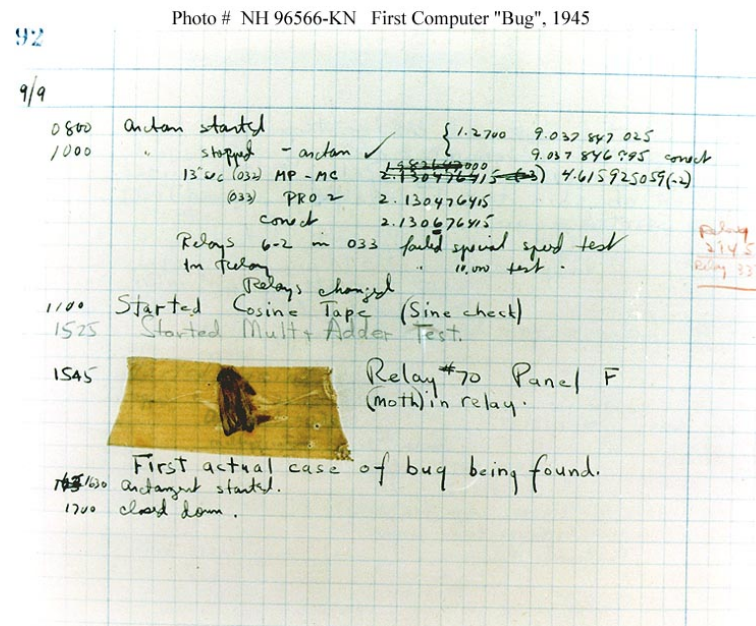 Photo # NH 96566-KN First Computer "Bug", 1945
92
9/9
0800 antan started
1000 " stopped - antan ✓ { 1.2700 9.037 847 025
9.037 846 995 conect
13"uc (032) MP - MC 2.130476415 4.615925059(-2)
(033) PRO 2 2.130476415
conect 2.130676415
Relays 6-2 in 033 failed special speed test
In Relay " 10,000 test .
Relays changed
1100 Started Cosine Tape (Sine check)
1525 Started Mult + Adder Test.
1545 Relay #70 Panel F
(moth) in relay.
First actual case of bug being found.
1630 antangent started.
1700 closed down .
Relay
2145
Relay 33